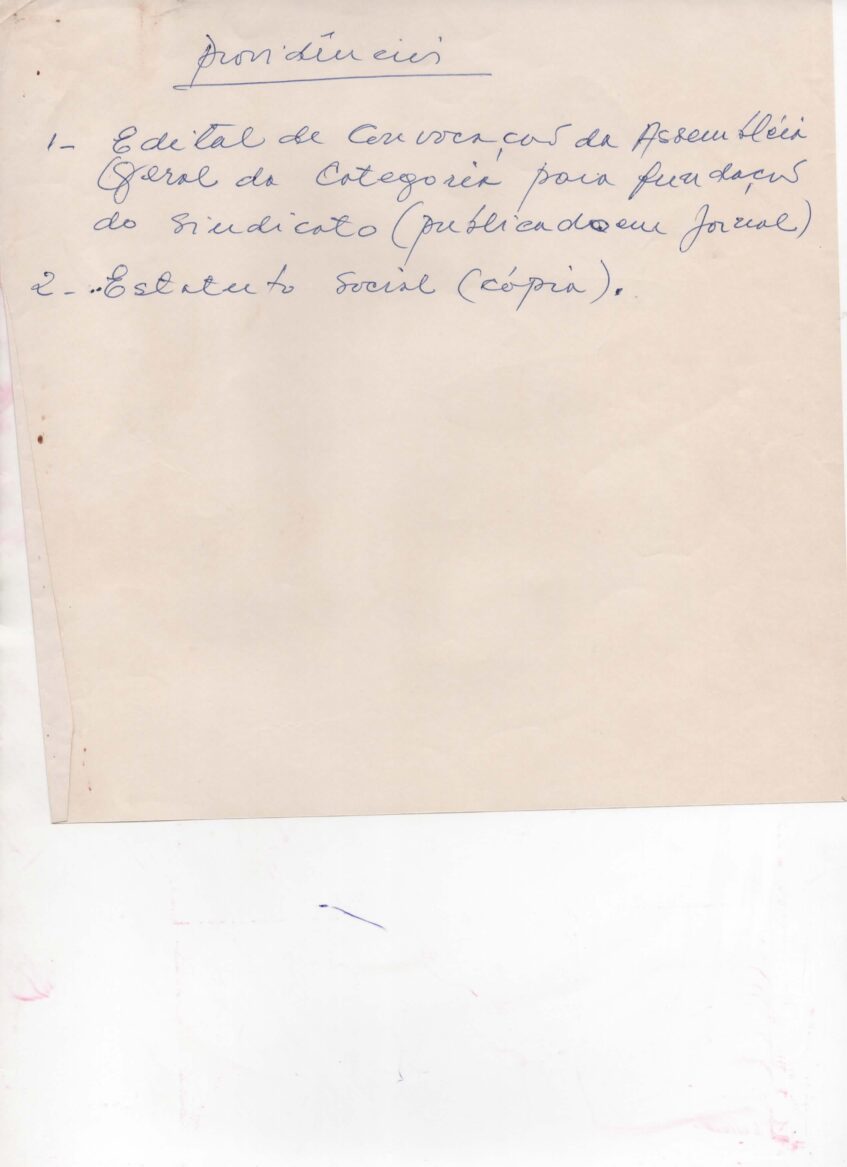 Providências
1- Edital de Convocação da Assembléia
Geral da Categoria para fundação
do Sindicato (publicado em Jornal)
2- Estatuto Social (cópia).